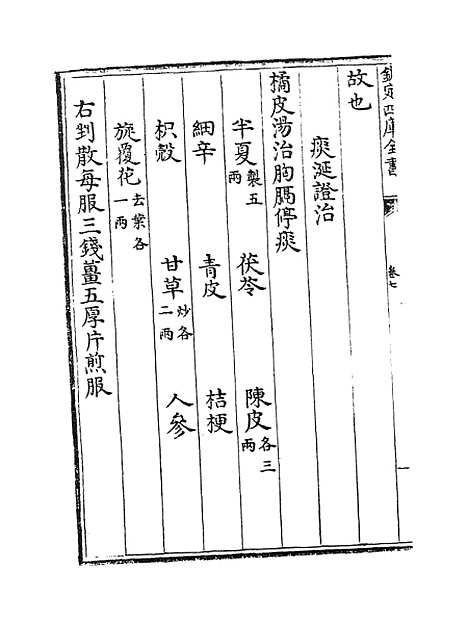 欽定四庫全書 卷七
故也
痰涎證治
橘皮湯治胸膈停痰
半夏製五兩 茯苓 陳皮各三兩
細辛 青皮 桔梗
枳殼 甘草炒各二兩 人參
旋覆花去葉各一兩
右剉散每服三錢薑五厚片煎服